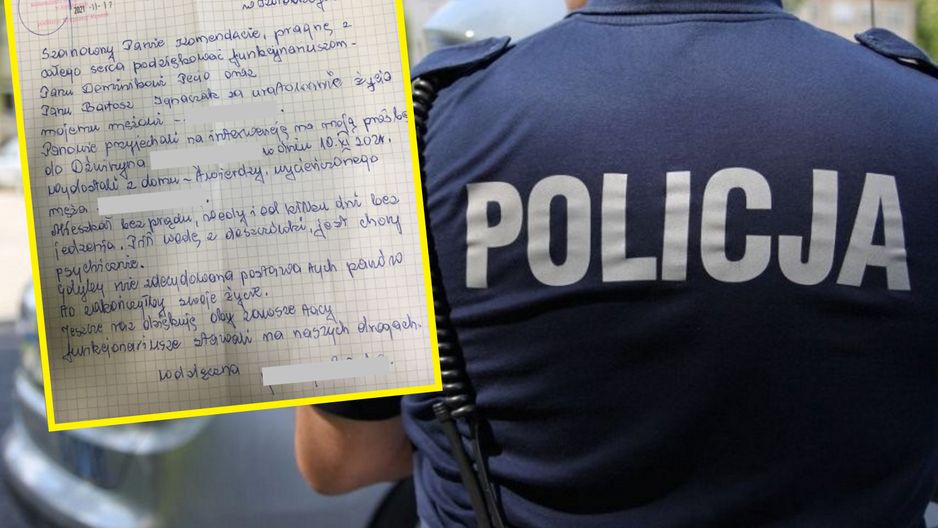 2021 -11- 17
Szanowny Panie Komendacie, pragnę z
całego serca podziękować funkcjonariuszom -
Panu Dominikowi Pecio oraz
Panu Bartosz Ignaczak za uratowanie życia
mojemu mężowi -
Panowie przyjechali na interwencję na moją prośbę
do Dźwirzyna w dniu 10.XI 2021r.
wydostali z domu - twierdzy, wycieńczonego
męża
Mieszkał bez prądu, wody i od kilku dni bez
jedzenia. Pił wodę z deszczówki, jest chory
psychicznie.
Gdyby nie zdecydowana postawa tych panów
to zakończyłby swoje życie.
Jeszcze raz dziękuję oby zawsze tacy
funkcjonariusze stawali na naszych drogach.
wdzięczna
POLICJA